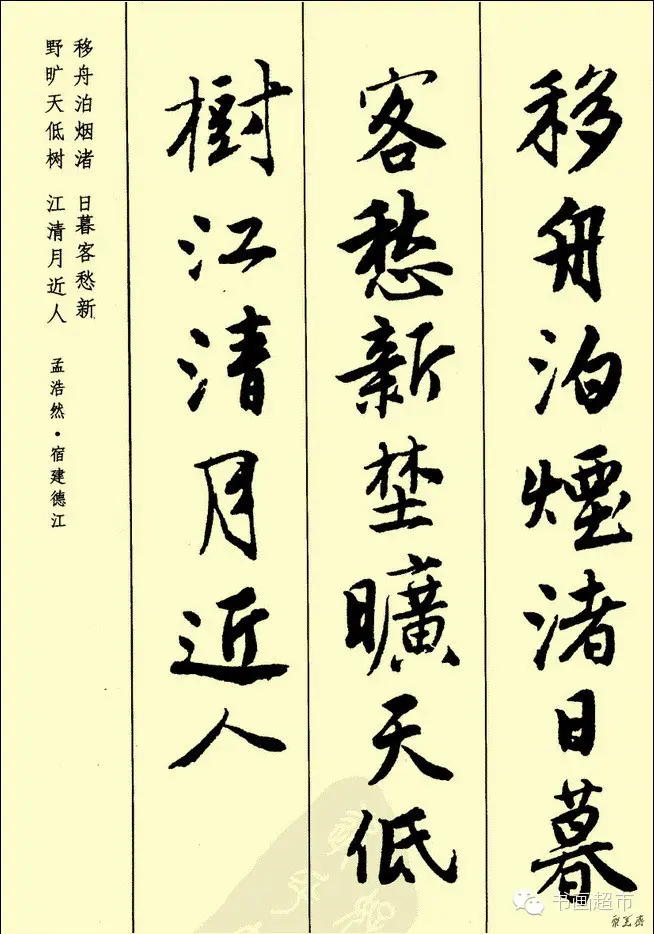 移舟泊煙渚日暮
客愁新埜曠天低
樹江清月近人
移舟泊烟渚 日暮客愁新
野旷天低树 江清月近人
孟浩然·宿建德江
书画超市